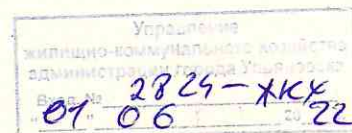 Управление
жилищно-коммунального хозяйства
администрации города Ульяновска
Вход. № 2824-ЖКХ
"01" 06 2022